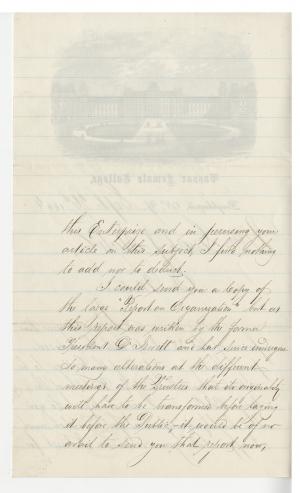 this Enterprise and in perusing your
article on this subject, I find nothing
to add nor to deduct.
I could send you a copy of
the large "Report on Organization" but as
this report was written by the former
President D Jewett and has since undergone
so many alterations at the different
meetings of the Trustees that it
will have to be transformed before laying
it before the Public, – it would be of no
avail to send you that report now,